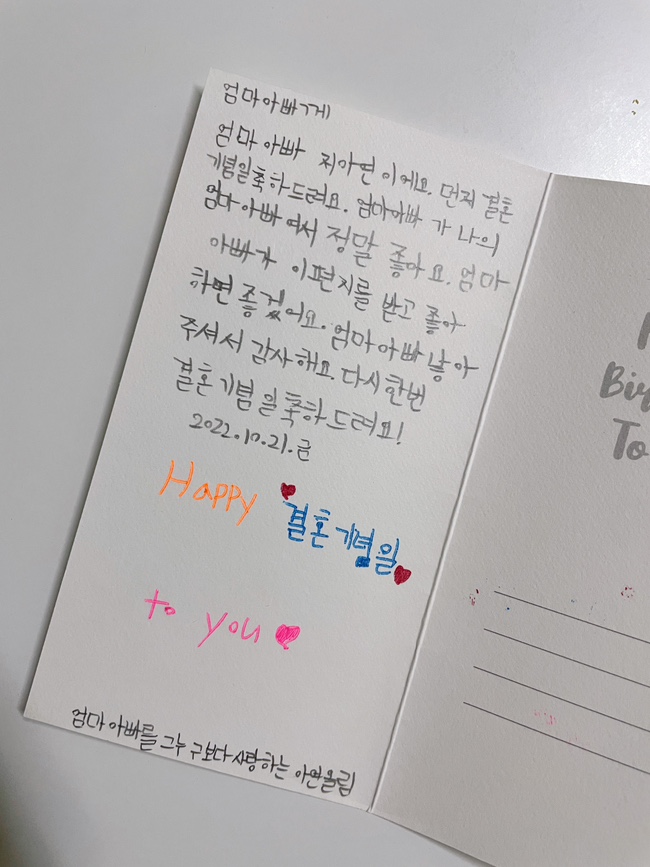 엄마아빠께
엄마 아빠 저아연이에요. 먼저 결혼
기념일축하드려요. 엄마아빠가 나의
엄마아빠여서 정말 좋아요. 엄마
아빠가 이편지를 받고 좋아
하면 좋겠어요. 엄마아빠 낳아
주셔서 감사해요. 다시한번
결혼기념일축하드려요!
2022.10.21.금
Happy 결혼기념일
to you
엄마아빠를 그누구보다사랑하는 아연올림
Bir
To